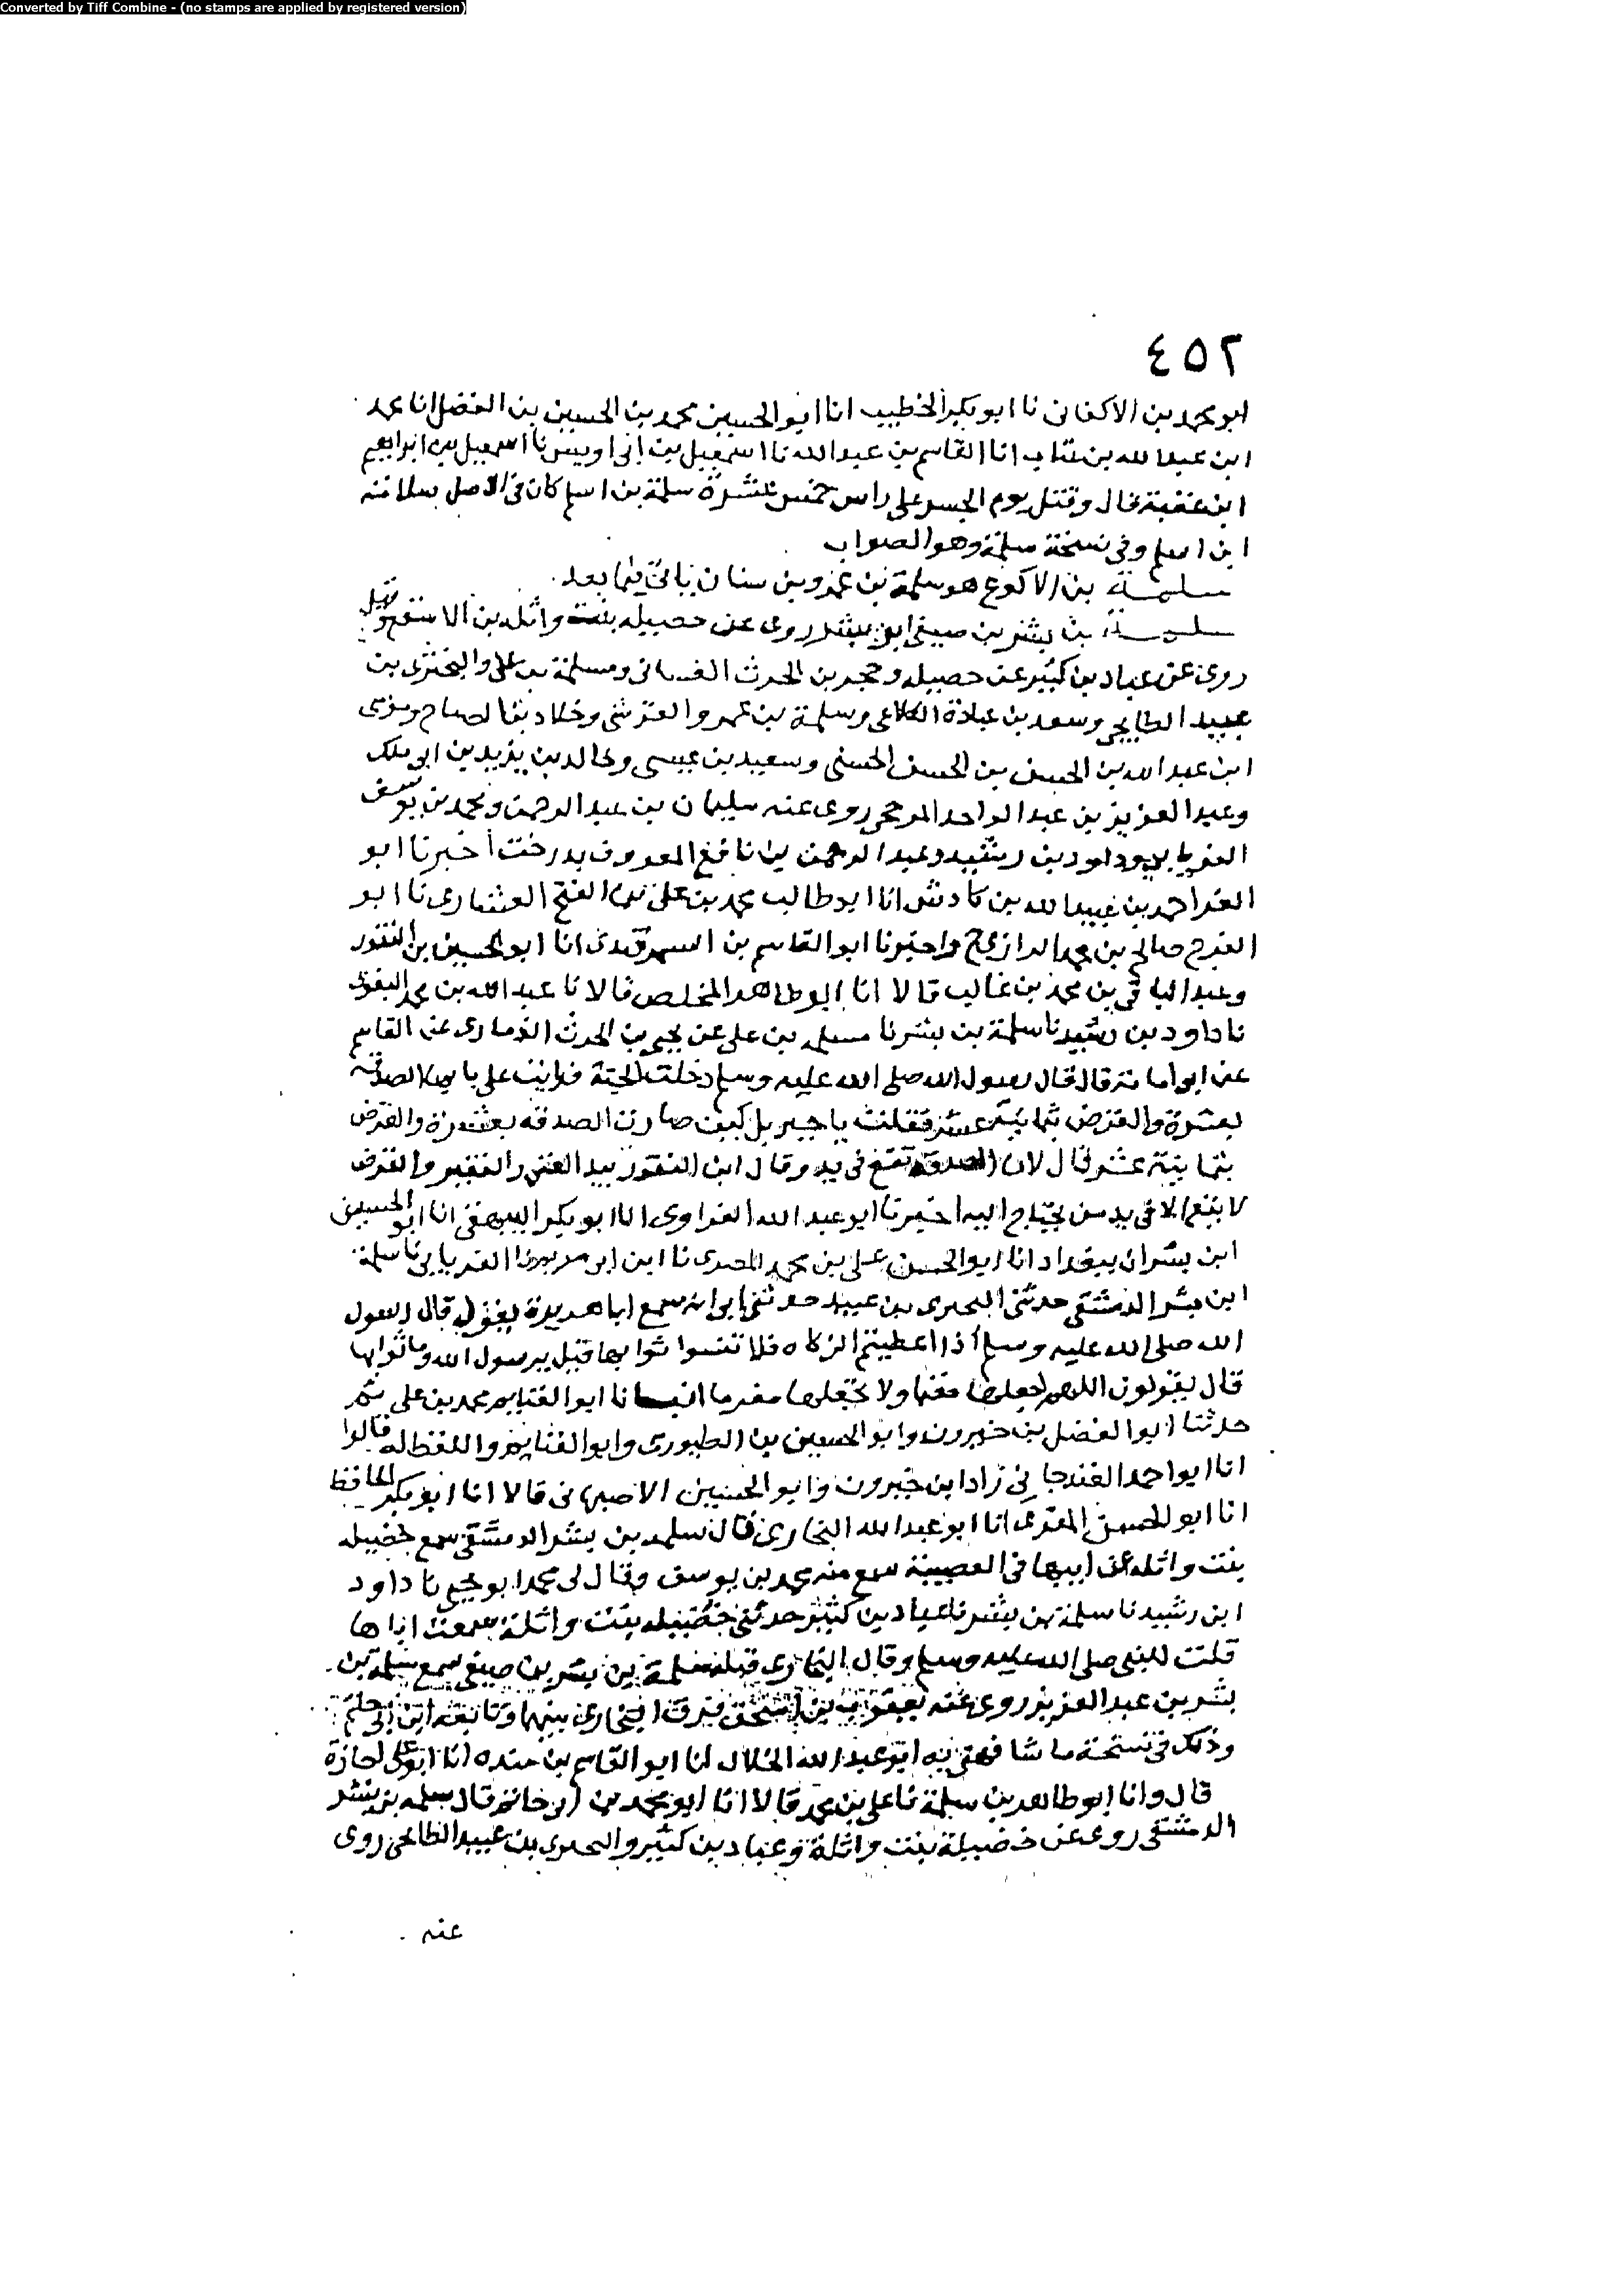 Converted by Tiff Combine - (no stamps are applied by registered version)
٤٥٢
ابو محمد بن الاكفانى نا ابو بكر الخطيب انا ابو الحسين محمد بن الحسين بن الفضل انا محمد
ابن عبد الله بن عتاب انا القاسم بن عبد الله نا اسمعيل بن ابى اويس نا اسمعيل بن ابراهيم
ابن عقبة قال وقتل يوم الجسر على راس خمس عشرة سلمة بن اسلم كان فى الاصل سلامه
ابن اسلم وفى نسخة سلمة وهو الصواب
سلمة بن الاكوع هو سلمة بن عمرو بن سنان ياتى فيما بعد
سلمة بن بشر بن صيفى ابو بشر روى عن خصيله بنت واثله بن الاسقع وقيل
روى عن عباد بن كثير عن خصيله وحجر بن الحرث الغسانى ومسلمة بن على والبخترى بن
عبيد الطابخى وسعد بن عبادة الكلاعى وسلمة بن عمرو القرشى وخلاد بن الصباح وموسى
ابن عبد الله بن الحسن بن الحسن الحسنى وسعيد بن عيسى وخالد بن يزيد بن ابى ملك
وعبد العزيز بن عبد الواحد المرجحى روى عنه سليمان بن عبد الرحمن ومحمد بن يوسف
الفريابى وداود بن رشيد وعبد الرحمن بن نافع المعروف بدرخت أخبرنا ابو
العز احمد بن عبيد الله بن كادش انا ابو طالب محمد بن على بن الفتح العشارى نا ابو
الفرج صالح بن محمد الرازى ح واخبرنا ابو القاسم بن السمرقندى انا ابو الحسين بن النقور
وعبد الباقى بن محمد بن غالب قالا انا ابو طاهر المخلص قالا نا عبد الله بن محمد البغوى
نا داود بن رشيد نا سلمة بن بشر نا مسلمه بن على عن يحيى بن الحرث الذمارى عن القاسم
عن ابى امامة قال قال رسول الله صلى الله عليه وسلم دخلت الجنة فرايت على بابها الصدقه
بعشرة والقرض بثمانية عشر فقلت يا جبريل كيف صارت الصدقه بعشرة والقرض
بثمانية عشر قال لان الصدقة تقع فى يد وقال ابن النقور بيد الغنى والفقير والقرض
لا يقع الا فى يد من يحتاج اليه اخبرنا ابو عبد الله الفراوى انا ابو بكر البيهقى انا ابو الحسين
ابن بشران ببغداد انا ابو الحسن على بن محمد المصرى نا ابن ابى مريم نا الفريابى نا سلمة
ابن بشر الدمشقى حدثنى البحترى بن عبيد حدثنى ابى انه سمع ابا هريرة يقول قال رسول
الله صلى الله عليه وسلم أذا اعطيتم الزكاه فلا تنسوا ثوابها قيل يرسول الله وما ثوابها
قال يقولون اللهم اجعلها مغنما ولا تجعلها مغرما انبـانا ابو الغنايم محمد بن على ثم
حدثنا ابو الفضل بن خيرون وابو الحسين بن الطيورى وابو الغنايم واللفظ له قالوا
انا ابو احمد الغندجانى زاد ابن خيرون وابو الحسين الاصبهانى قالا انا ابو بكر الحافظ
انا ابو الحسن المقرى انا ابو عبد الله البخارى قال سلمه بن بشر الدمشقى سمع خصيله
بنت واثله عن ابيها فى العصبية سمع منه محمد بن يوسف وقال لى محمد ابو يحيى نا داود
ابن رشيد نا سلمة بن بشر نا عباد بن كثير حدثتنى خصيله بنت واثلة سمعت اباها
قلت للنبى صلى الله عليه وسلم وقال البخارى قبله سلمة بن بشر بن صيفى سمع سلمة بن
بشر بن عبد العزيز روى عنه يعقوب بن اسحق فرق البخارى بينهما وتابعه ابن ابى حاتم
وذلك فى نسخة ما شافهنى به ابو عبد الله الخلال انا ابو القاسم بن منده انا ابو على اجازة
قال وانا ابو طاهر بن سلمة نا على بن محمد قالا انا ابو محمد بن ابى حاتم قال سلمه بن بشر
الدمشقى روى عن خصيلة بنت واثلة وعباد بن كثير والبحترى بن عبيد الطابخى روى
عنه